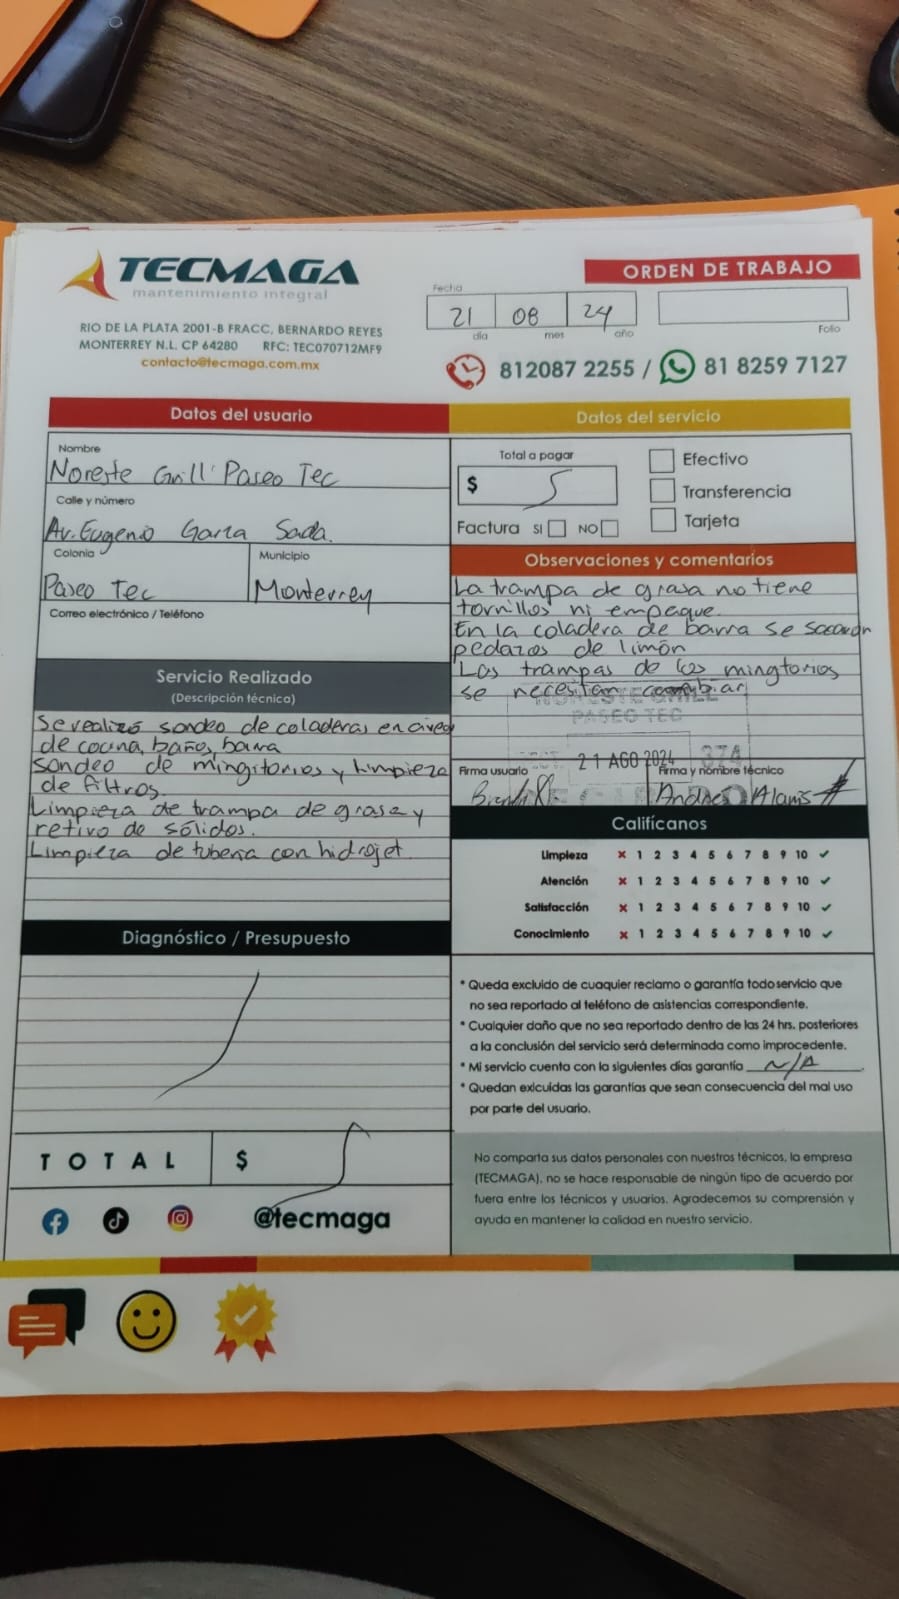 TECMAGA
mantenimiento integral
RIO DE LA PLATA 2001-B FRACC, BERNARDO REYES
MONTERREY N.L. CP 64280 RFC: TEC070712MF9
contacto@tecmaga.com.mx
ORDEN DE TRABAJO
Fecha
21 08 24
día mes año
Folio
812087 2255 / 81 8259 7127
Datos del usuario
Nombre
Noreste Grill' Paseo Tec
Calle y número
Av. Eugenio Garza Sada.
Colonia Municipio
Paseo Tec Monterrey
Correo electrónico / Teléfono
Datos del servicio
Total a pagar
$
Efectivo
Transferencia
Tarjeta
Factura SI NO
Observaciones y comentarios
La trampa de grasa no tiene
tornillos ni empaque.
En la coladera de barra se sacaron
pedazos de limón
Las trampas de los mingtorios
se necesitan cambiar
NORESTE GRILL
PASEO TEC
21 AGO 2024 374
Firma usuario Firma y nombre técnico
Andres Alanis
Servicio Realizado
(Descripción técnica)
Se realizó sondeo de coladeras en area
de cocina, baños, barra
sondeo de mingitorios y limpieza
de filtros.
Limpieza de trampa de grasa y
retivo de sólidos.
Limpieza de tuberia con hidrojet
Califícanos
Limpieza x 1 2 3 4 5 6 7 8 9 10 ✓
Atención x 1 2 3 4 5 6 7 8 9 10 ✓
Satisfacción x 1 2 3 4 5 6 7 8 9 10 ✓
Conocimiento x 1 2 3 4 5 6 7 8 9 10 ✓
Diagnóstico / Presupuesto
TOTAL $
@tecmaga
* Queda excluido de cuaquier reclamo o garantía todo servicio que
no sea reportado al teléfono de asistencias correspondiente.
* Cualquier daño que no sea reportado dentro de las 24 hrs. posteriores
a la conclusión del servicio será determinada como improcedente.
* Mi servicio cuenta con la siguientes días garantía N/A
* Quedan exlcuidas las garantías que sean consecuencia del mal uso
por parte del usuario.
No comparta sus datos personales con nuestros técnicos, la empresa
(TECMAGA), no se hace responsable de ningún tipo de acuerdo por
fuera entre los técnicos y usuarios. Agradecemos su comprensión y
ayuda en mantener la calidad en nuestro servicio.